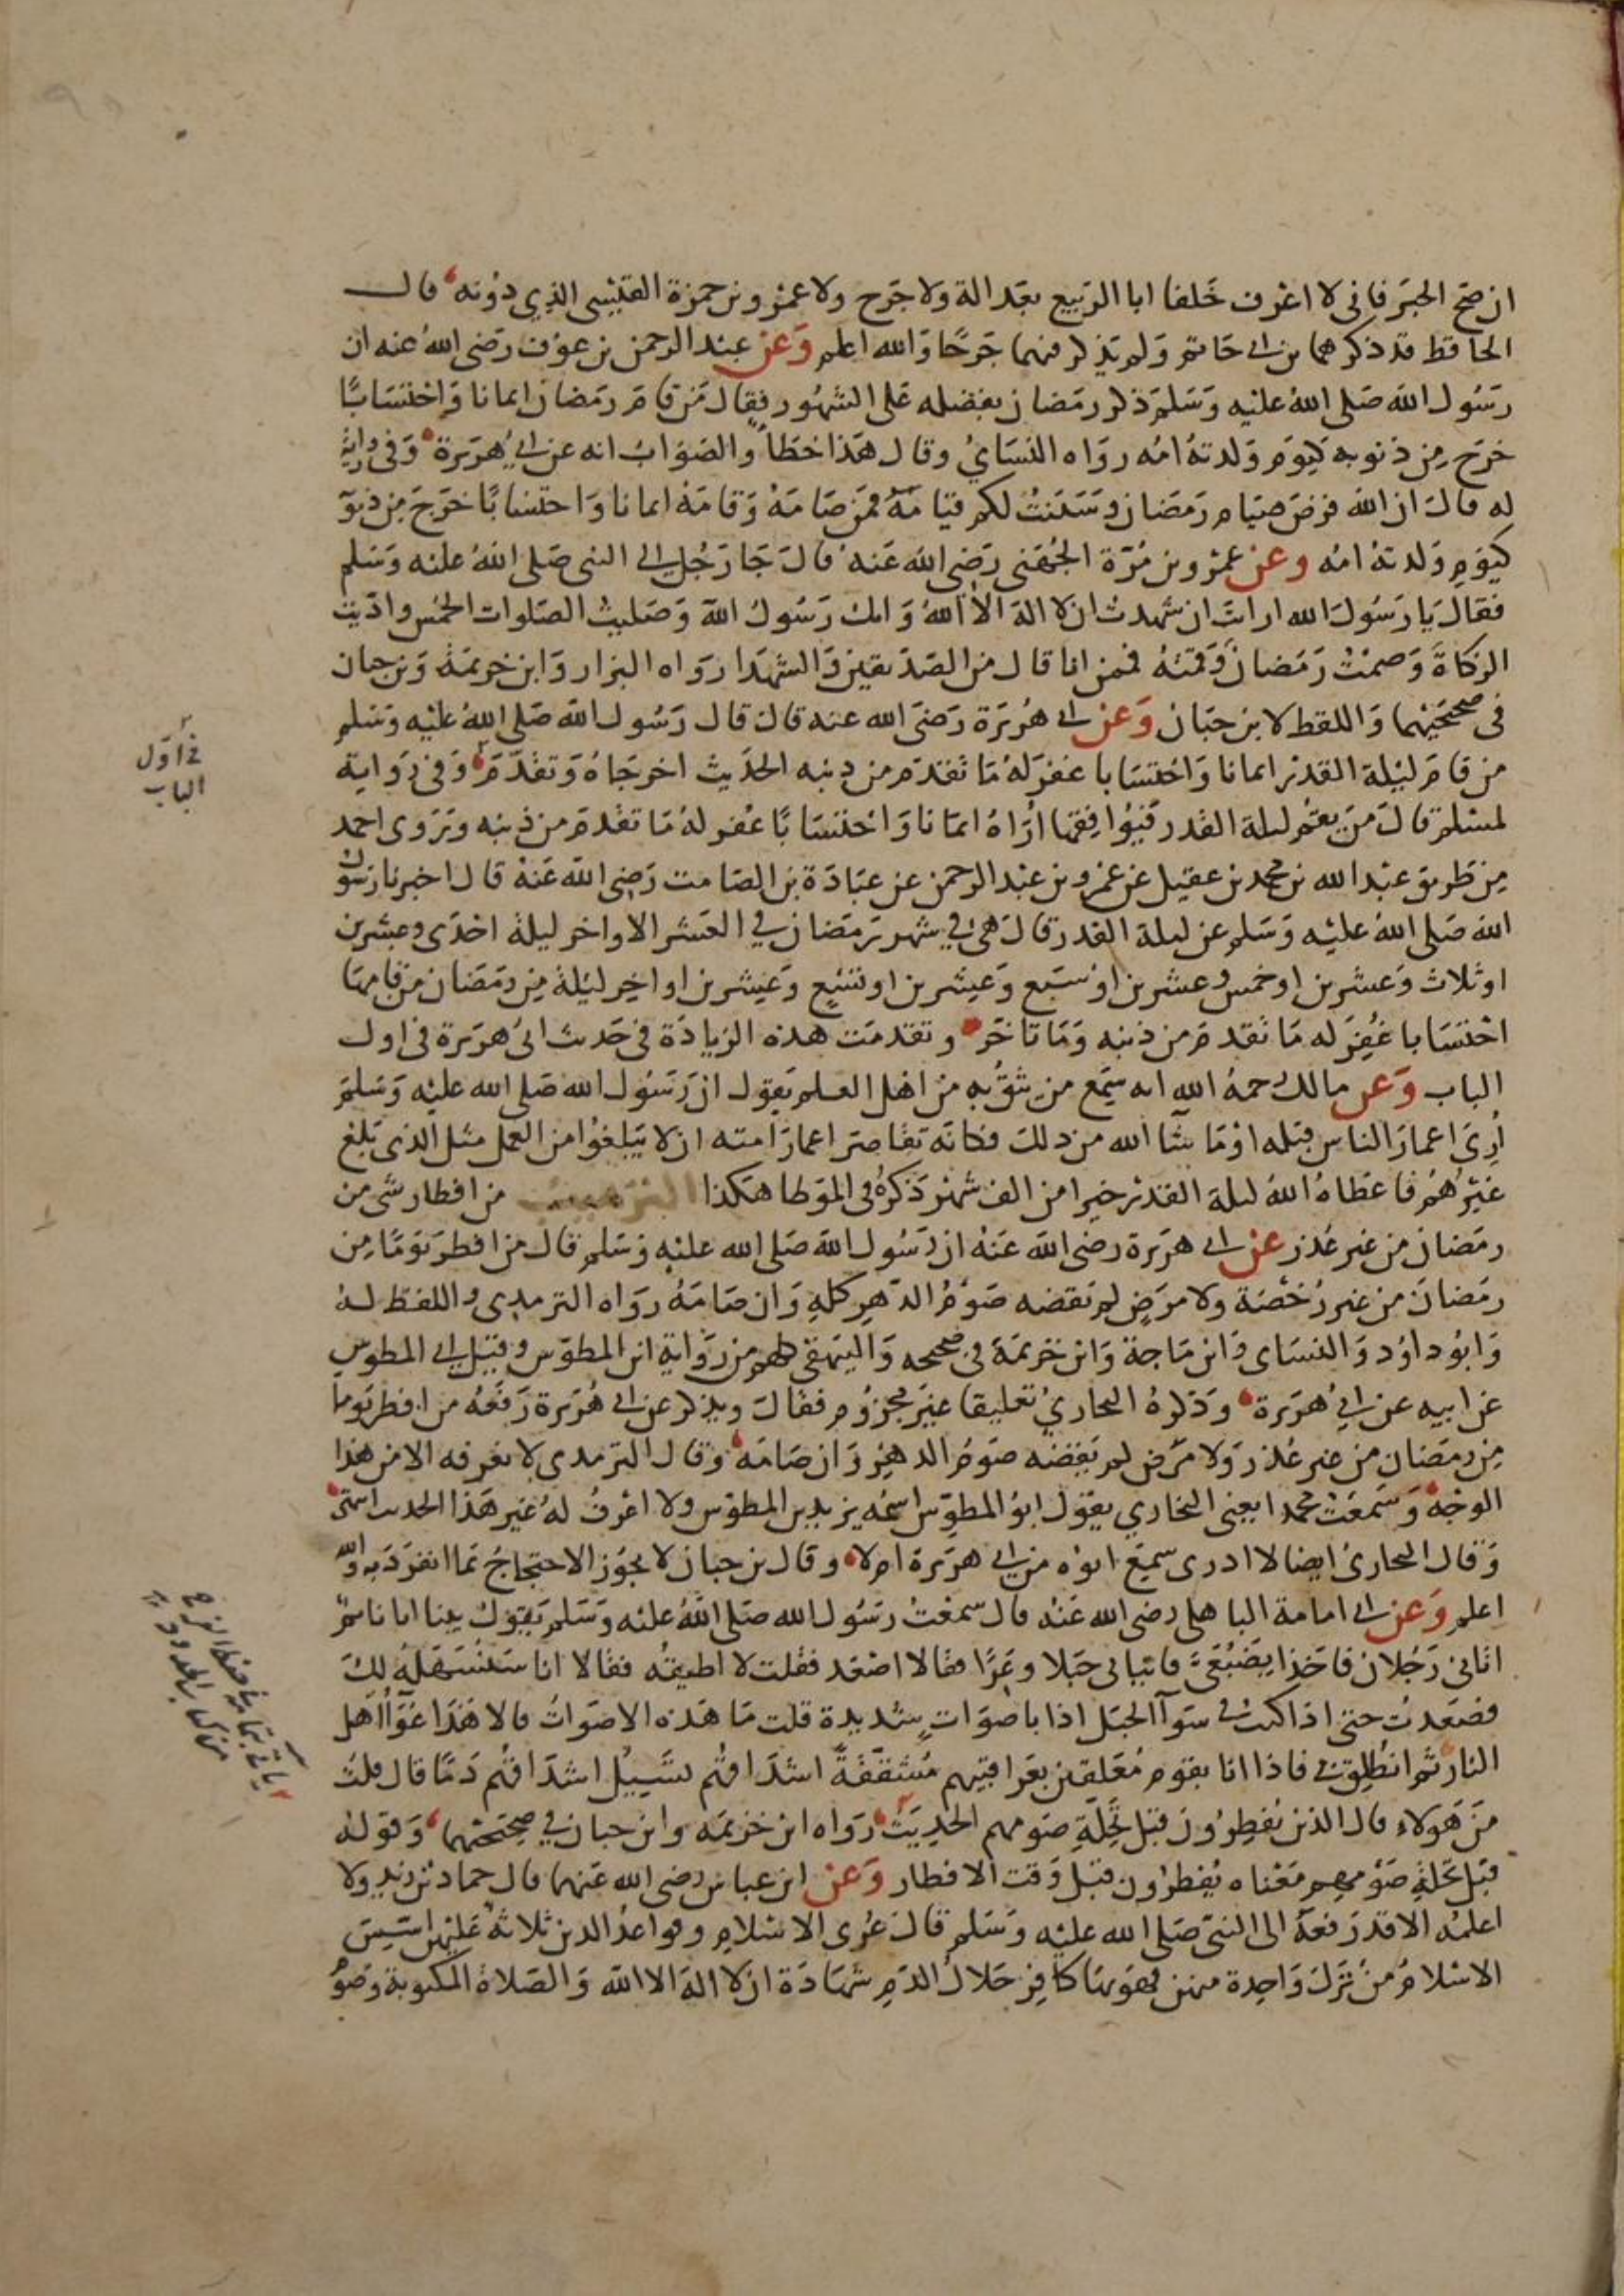 ان صح الخبر فاني لا اعرف خلفا ابا الربيع بعدالة ولا جرح ولا عمرو بن حمزة القيسي الذي دونه قال
الحافظ قد ذكرهما بن ابي حاتم ولم يذكر فيهما جرحا والله اعلم وعن عبد الرحمن بن عوف رضى الله عنه ان
رسول الله صلى الله عليه وسلم ذكر رمضان بفضله على الشهور فقال من قام رمضان ايمانا واحتسابا
خرج من ذنوبه كيوم ولدته امه رواه النسائي وقال هذا خطأ والصواب انه عن ابي هريرة وفي رواية
له قال ان الله فرض صيام رمضان وسننت لكم قيامه فمن صامه وقامه ايمانا واحتسابا خرج من ذنو
كيوم ولدته امه وعن عمرو بن مرة الجهني رضي الله عنه قال جا رجل الى النبي صلى الله عليه وسلم
فقال يا رسول الله ارايت ان شهدت ان لا اله الا الله وانك رسول الله وصليت الصلوات الخمس واديت
الزكاة وصمت رمضان وقمته فممن انا قال من الصديقين والشهدا رواه البزار وابن خزيمة وبن حبان
في صحيحيهما واللفظ لابن حبان وعن ابي هريرة رضى الله عنه قال قال رسول الله صلى الله عليه وسلم
من قام ليلة القدر ايمانا واحتسابا غفر له ما تقدم من ذنبه الحديث اخرجاه وتقدم وفي رواية
لمسلم قال من يقم ليلة القدر فيوافقها اراه ايمانا واحتسابا غفر له ما تقدم من ذنبه وروى احمد
من طريق عبد الله بن محمد بن عقيل عن عمرو بن عبد الرحمن عن عبادة بن الصامت رضي الله عنه قال اخبرنا رسو
الله صلى الله عليه وسلم عن ليلة القدر قال هي في شهر رمضان في العشر الاواخر ليلة احدى وعشرين
او ثلاث وعشرين او خمس وعشرين او سبع وعشرين او تسع وعشرين او اخر ليلة من رمضان من قامها
احتسابا غفر له ما تقدم من ذنبه وما تاخر وتقدمت هذه الزيادة في حديث ابي هريرة في اول
الباب وعن مالك رحمه الله انه سمع من يثق به من اهل العلم يقول ان رسول الله صلى الله عليه وسلم
أرى اعمار الناس قبله او ما شآ الله من ذلك فكانه تقاصر اعمار امته ان لا يبلغوا من العمل مثل الذي بلغ
غيرهم فاعطاه الله ليلة القدر خير ا من الف شهر ذكره في الموطا هكذا الترهيب من افطار شي من
رمضان من غير عذر عن ابي هريرة رضى الله عنه ان رسول الله صلى الله عليه وسلم قال من افطر يوما من
رمضان من غير رخصة ولا مرض لم يقضه صوم الدهر كله وان صامه رواه الترمذي واللفظ له
وابو داود والنساى وابن ماجة وابن خزيمة في صحيحه والبيهقي كلهم من رواية ابن المطوس وقيل ابي المطوس
عن ابيه عن ابي هريرة وذكره البخاري تعليقا غير مجزوم فقال ويذكر عن ابي هريرة رفعه من افطر يوما
من رمضان من غير عذر ولا مرض لم يقضه صوم الدهر وان صامه وقال الترمذي لا نعرفه الا من هذا
الوجه وسمعت محمدا يعني البخاري يقول ابو المطوس اسمه يزيد بن المطوس ولا اعرف له غير هذا الحديث انتهى
وقال البخاري ايضا لا ادرى سمع ابوه من ابي هريرة ام لا وقال بن حبان لا يجوز الاحتجاج بما انفرد به والله
اعلم وعن ابي امامة الباهلى رضى الله عنه قال سمعت رسول الله صلى الله عليه وسلم يقول بينا انا نائم
اتاني رجلان فاخذا بضبعي فاتيا بي جبلا وعرا فقالا اصعد فقلت لا اطيقه فقالا انا سنسهله لك
فصعدت حتى اذا كنت في سوآ الجبل اذا باصوات شديدة قلت ما هذه الاصوات قالا هذا عوآ اهل
النار ثم انطلق بي فاذا انا بقوم معلقين بعراقيبهم مشققة اشداقهم تسيل اشداقهم دما قال قلت
من هولاء قال الذين يفطرون قبل تحلة صومهم الحديث رواه ابن خزيمه وابن حبان في صحيحيهما وقوله
قبل تحلة صومهم معناه يفطرون قبل وقت الافطار وعن ابن عباس رضى الله عنهما قال حماد بن زيد ولا
اعلمه الا قد رفعه الى النبي صلى الله عليه وسلم قال عرى الاسلام وقواعد الدين ثلاثة عليهن اسس
الاسلام من ترك واحدة منهن فهو بها كافر حلال الدم شهادة ان لا اله الا الله والصلاة المكتوبة وصو
في اول
الباب